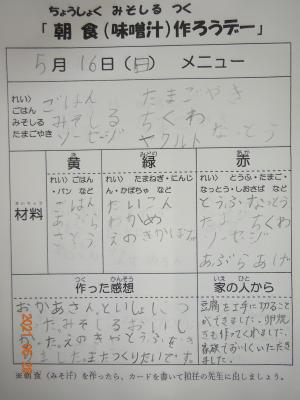 ちょうしょく みそしる つく
「朝食(味噌汁)作ろうデー」
5月16日(日) メニュー
れい) ごはん みそしる たまごやき
ごはん たまごやき
みそしる ちくわ
ソーセージ ヤクルト なっとう
材料
黄 緑 赤
れい) ごはん・パン など
れい) たまねぎ・にんじん・かぼちゃ など
れい) とうふ・たまご・なっとう・しおさば など
ごはん
あぶら
さとう
だいこん
わかめ
えのき かぼちゃ
とうふ なっとう
たまご ちくわ
ソーセージ
あぶらあげ
つく かんそう
作った感想
いえ ひと
家の人から
おかあさんといっしょにつ
くった みそしるおいし
かった。えのきやとうふ
ました。またつくりたいです。
豆腐を上手に切ること
ができました。卵焼
きも作ってくれました。
家族でおいしくいただき
ました。
※朝食(みそ汁)を作ったら、カードを書いて担任の先生に出しましょう。